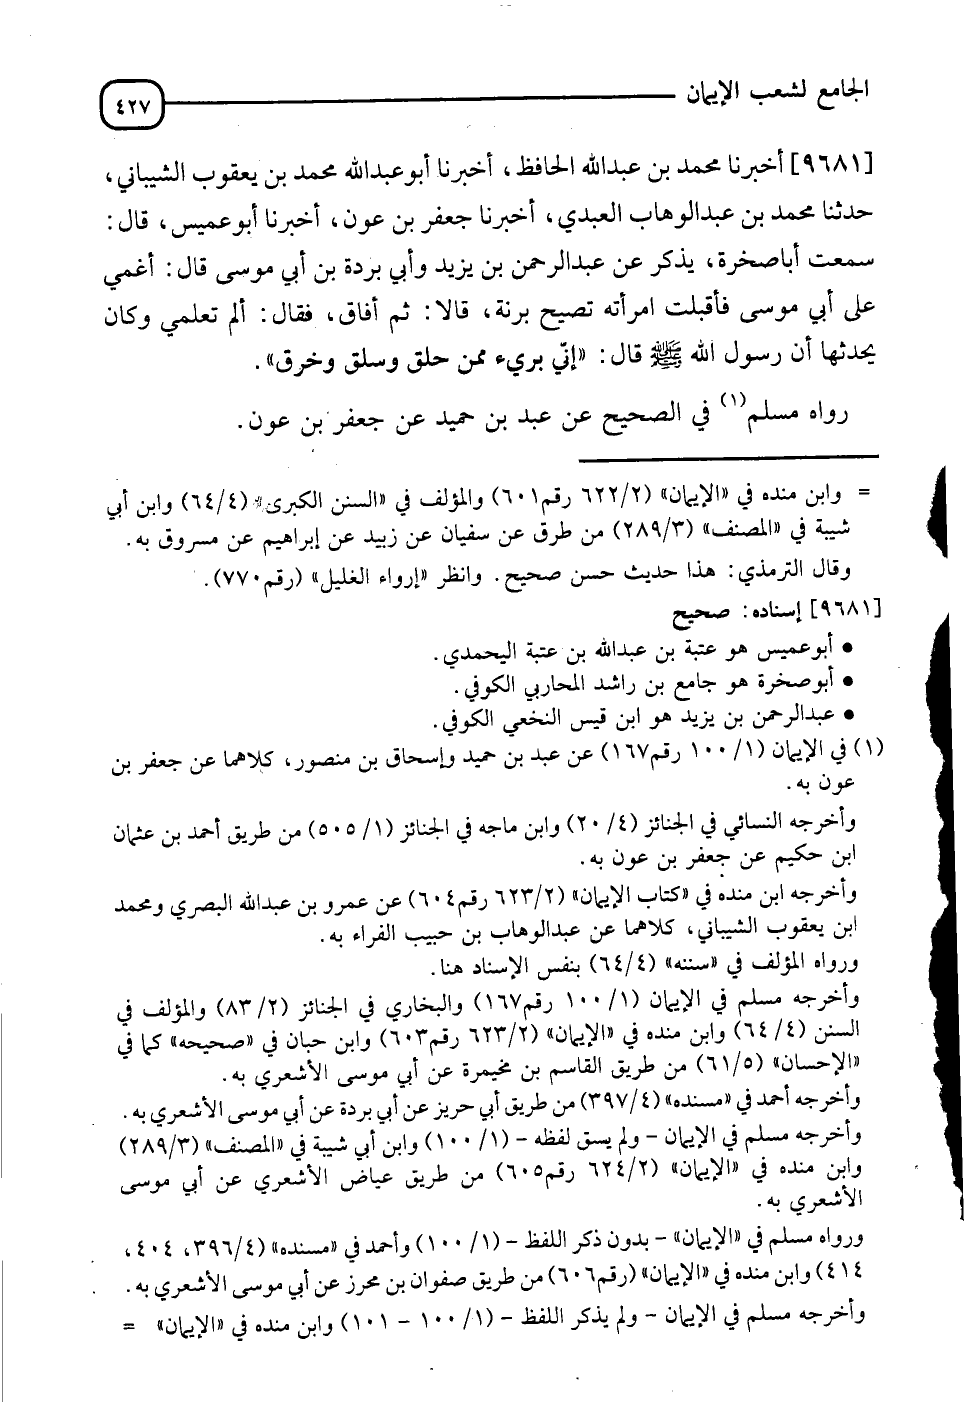 الجامع لشعب الإيمان ٤٢٧
[٩٦٨١] أخبرنا محمد بن عبدالله الحافظ، أخبرنا أبوعبدالله محمد بن يعقوب الشيباني،
حدثنا محمد بن عبدالوهاب العبدي، أخبرنا جعفر بن عون، أخبرنا أبوعميس، قال:
سمعت أباصخرة، يذكر عن عبدالرحمن بن يزيد وأبي بردة بن أبي موسى قال: أغمي
على أبي موسى فأقبلت امرأته تصيح برنة، قالا: ثم أفاق، فقال: ألم تعلمي وكان
يحدثها أن رسول الله ﷺ قال: «إنّي بريء ممن حلق وسلق وخرق».
رواه مسلم(١) في الصحيح عن عبد بن حميد عن جعفر بن عون.
= وابن منده في «الإيمان» (٦٢٢/٢ رقم٦٠١) والمؤلف في «السنن الكبرى» (٦٤/٤) وابن أبي
شيبة في «المصنف» (٢٨٩/٣) من طرق عن سفيان عن زبيد عن إبراهيم عن مسروق به.
وقال الترمذي: هذا حديث حسن صحيح. وانظر «إرواء الغليل» (رقم٧٧٠).
[٩٦٨١] إسناده: صحيح
● أبوعميس هو عتبة بن عبدالله بن عتبة اليحمدي.
● أبوصخرة هو جامع بن راشد المحاربي الكوفي.
● عبدالرحمن بن يزيد هو ابن قيس النخعي الكوفي.
(١) في الإيمان (١/ ١٠٠ رقم١٦٧) عن عبد بن حميد وإسحاق بن منصور، كلاهما عن جعفر بن
عون به.
وأخرجه النسائي في الجنائز (٤/ ٢٠) وابن ماجه في الجنائز (١/ ٥٠٥) من طريق أحمد بن عثمان
ابن حكيم عن جعفر بن عون به.
وأخرجه ابن منده في «كتاب الإيمان» (٦٢٣/٢ رقم٦٠٤) عن عمرو بن عبدالله البصري ومحمد
ابن يعقوب الشيباني، كلاهما عن عبدالوهاب بن حبيب الفراء به.
ورواه المؤلف في «سننه» (٦٤/٤) بنفس الإسناد هنا.
وأخرجه مسلم في الإيمان (١/ ١٠٠ رقم١٦٧) والبخاري في الجنائز (٢/ ٨٣) والمؤلف في
السنن (٤/ ٦٤) وابن منده في «الإيمان» (٦٢٣/٢ رقم٦٠٣) وابن حبان في «صحيحه» كما في
«الإحسان» (٦١/٥) من طريق القاسم بن مخيمرة عن أبي موسى الأشعري به.
وأخرجه أحمد في «مسنده» (٣٩٧/٤) من طريق أبي حريز عن أبي بردة عن أبي موسى الأشعري به.
وأخرجه مسلم في الإيمان - ولم يسق لفظه - (١/ ١٠٠) وابن أبي شيبة في «المصنف» (٢٨٩/٣)
وابن منده في «الإيمان» (٦٢٤/٢ رقم٦٠٥) من طريق عياض الأشعري عن أبي موسى
الأشعري به.
ورواه مسلم في «الإيمان» - بدون ذكر اللفظ - (١/ ١٠٠) وأحمد في «مسنده» (٣٩٦/٤، ٤٠٤،
٤١٤) وابن منده في «الإيمان» (رقم٦٠٦) من طريق صفوان بن محرز عن أبي موسى الأشعري به.
وأخرجه مسلم في الإيمان - ولم يذكر اللفظ - (١/ ١٠٠ - ١٠١) وابن منده في «الإيمان» =